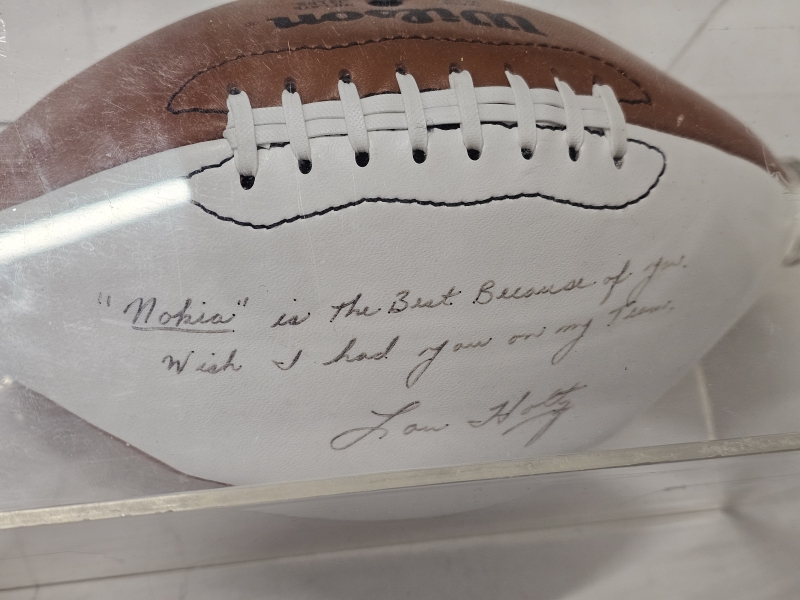 Wilson
"Nokia" is the Best Because of you.
Wish I had you on my Team.
Lou Holtz